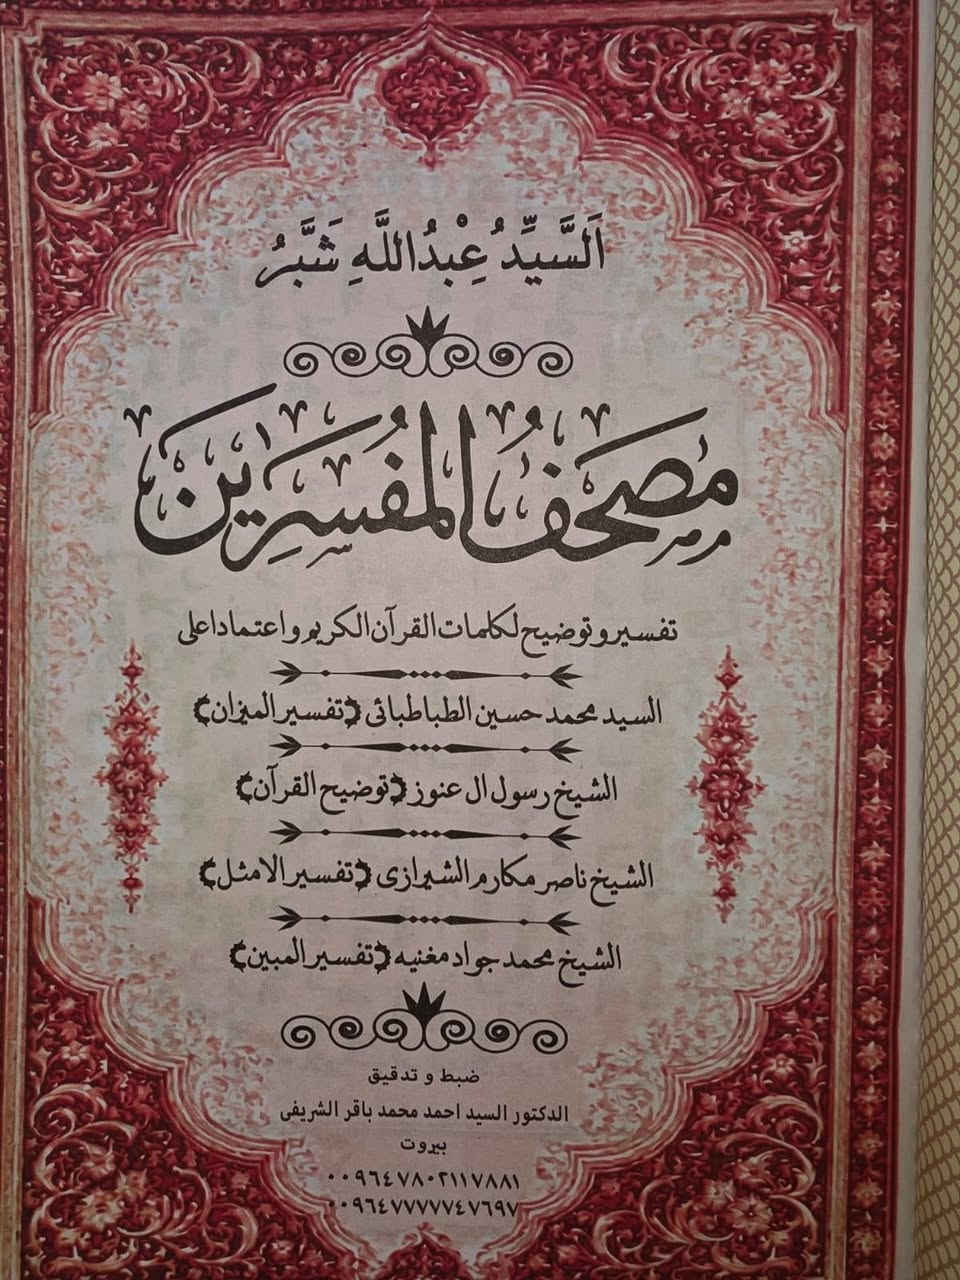 اَلسَّيِّدُ عِبْدُاللَّهِ شَبَّرُ
مصحف المفسرين
تفسير و توضيح لكلمات القرآن الكريم و اعتمادا على
السيد محمد حسين الطباطبائى (تفسير الميزان)
الشيخ رسول ال عنوز (توضيح القرآن)
الشيخ ناصر مكارم الشيرازى (تفسير الامثل)
الشيخ محمد جواد مغنيه (تفسير المبين)
ضبط و تدقيق
الدكتور السيد احمد محمد باقر الشريفى
بيروت
٠٠٩٦٤٧٨٠٢١١٧٨٨١
٠٠٩٦٤٧٧٧٧٧٤٧٦٩٧